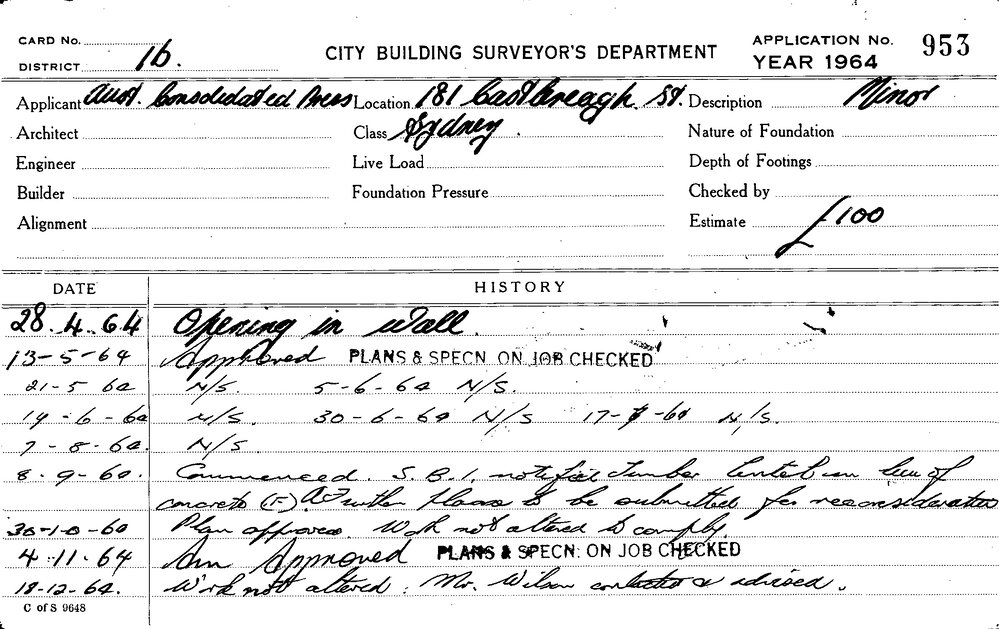 CARD No.
DISTRICT 1b.
CITY BUILDING SURVEYOR'S DEPARTMENT
APPLICATION No. 953
YEAR 1964
Applicant Aust. Consolidated Press Location 181 Castlereagh St. Description Minor
Architect Class Sydney. Nature of Foundation
Engineer Live Load Depth of Footings
Builder Foundation Pressure Checked by
Alignment Estimate £100
DATE HISTORY
28.4.64 Opening in Wall.
13-5-64 Approved PLANS & SPECN. ON JOB CHECKED
21-5 64 N/S. 5-6-64 N/S.
19-6-64 N/S. 30-6-64 N/S 17-7-64 N/S.
7-8-64. N/S.
8-9-64. Commenced. S.B.I. notified timber lintel in lieu of
concrete further plans to be submitted for reconsideration
30-10-64 Plan approved. Work not altered to comply.
4.11.64 Am Approved PLANS & SPECN: ON JOB CHECKED
18-12-64. Work not altered. Mr. Wilson contacted & advised.
C of S 9648